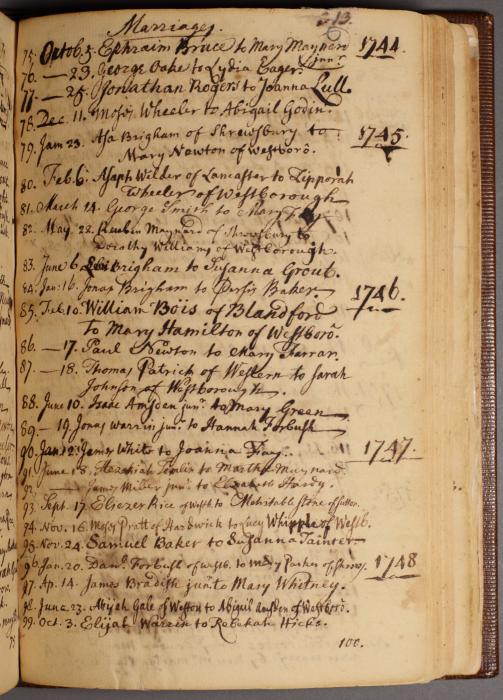 Marriages. 213.
75. Octob. 5. Ephraim Bruce to Mary Maynard junr. 1744
76. — 23. George Oake to Lydia Eager.
77 — 25. Jonathan Rogers to Joanna Lull.
78. Dec. 11. Moses Wheeler to Abigail Godin.
79. Jan 23. Asa Brigham of Shrewsbury to 1745.
Mary Newton of Westboro.
80. Feb. 6. Asaph Wilder of Lancaster to Zipporah
Wheeler of Westborough
81. March 14. George Smith to Mary
82. May. 22. Reuben Maynard of Shrewsbury to
Dorathy Williams of Westborough.
83. June 6. Levi Brigham to Susanna Grout.
84. Jan. 16. Jonas Brigham to Persis Baker. 1746.
85. Feb. 10. William Bois of Blandford
To Mary Hamilton of Westboro.
86. — 17. Paul Newton to Mary Farrar.
87. — 18. Thomas Patrick of Western to Sarah
Johnson of Westborough
88. June 10. Isaac Amsden junr. to Mary Green
89. — 19. Jonas Warrin junr. to Hannah Forbush
90. Jan. James White to Joanna Fay. 1747.
91. June 18. Hezekiah to Martha Maynard.
92. — James Miller junr. to Elizabeth Hardy.
93. Sept. 17. Eliezer Rice of Westb. to Mehitable Stone of Sutton.
94. Nov. 16. Moses Pratt of Hardwick to Lucy Whipple of Westb.
95. Nov. 24. Samuel Baker to Susanna Tainter.
96 Jan. 20. Danl. Forbush of Westb. to Mary Parker of Shrewsy. 1748
97. Ap. 14. James Bradish junr. to Mary Whitney.
98. June 23. Abijah Gale of Weston to Abigail Amsden of Westboro.
99. Oct. 3. Elijah Warrin to Rebekah Hicks.
100.